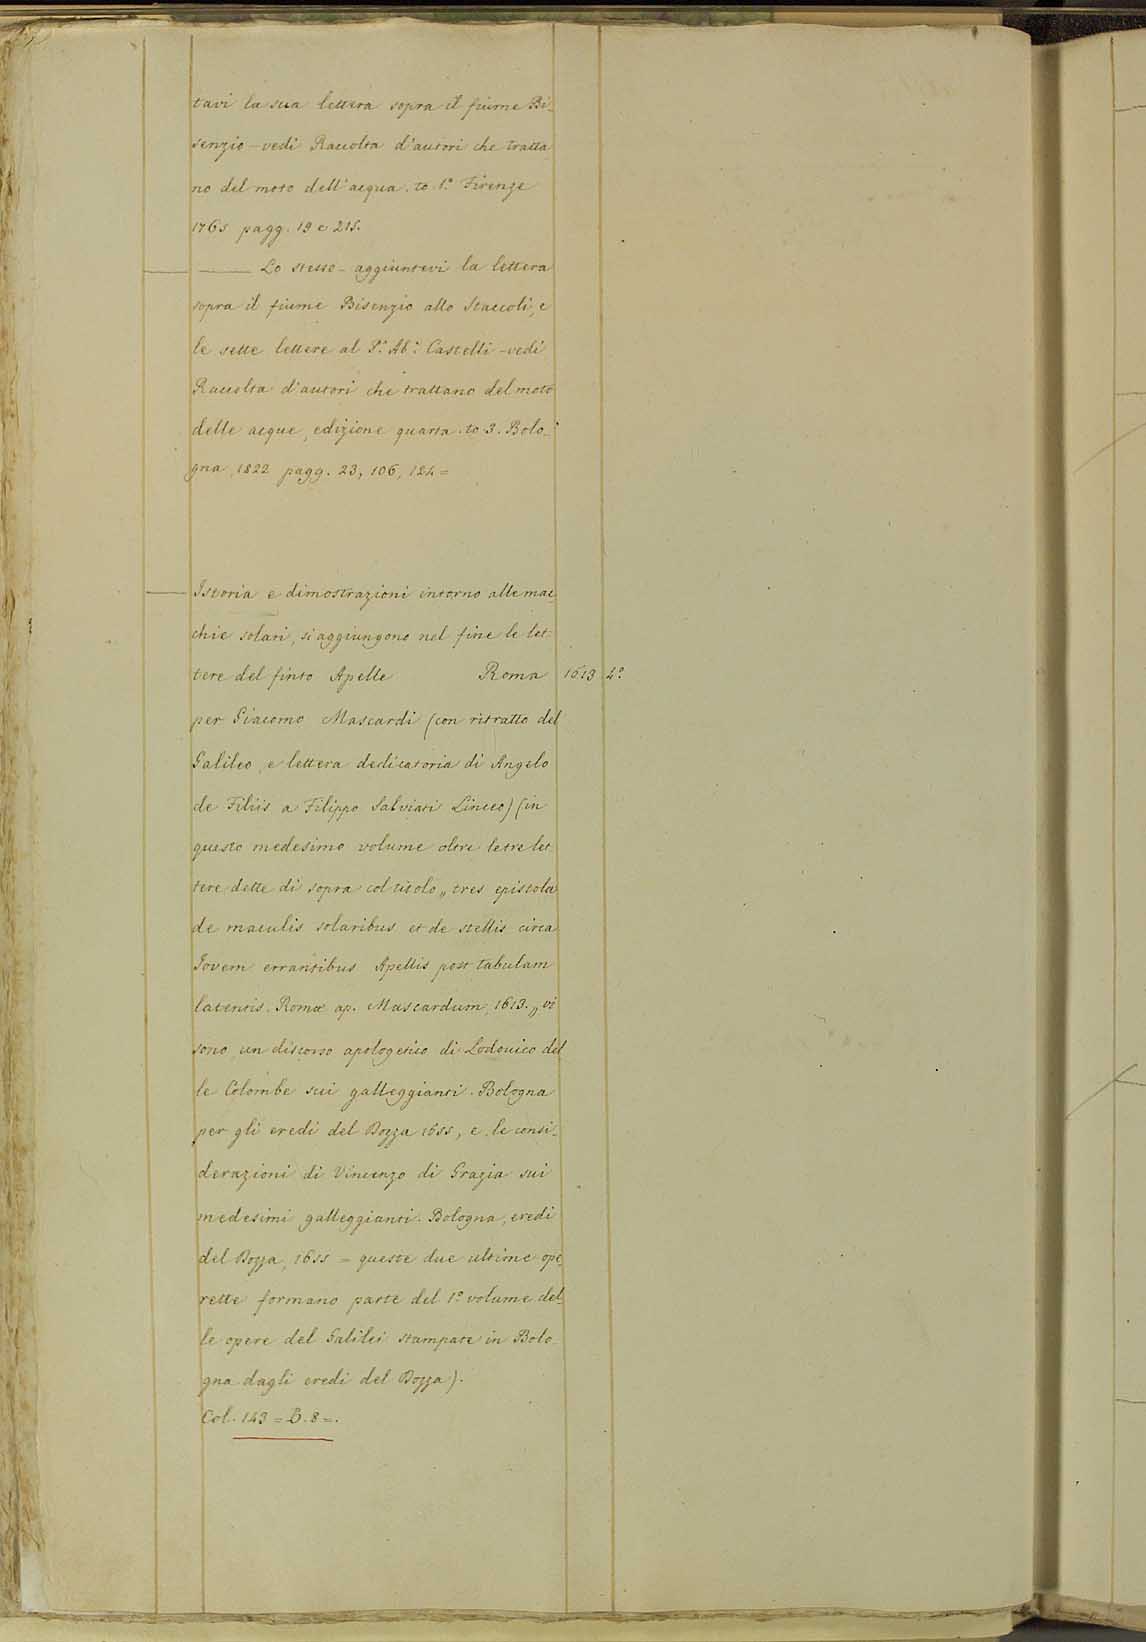 tavi la sua lettera sopra il fiume Bi-
senzio - vedi Raccolta d'autori che tratta
no del moto dell'acqua. to. 1.º Firenze
1765 pagg. 19 e 215.
Lo stesso - aggiuntevi la lettera
sopra il fiume Bisenzio allo Staccoli, e
le sette lettere al P. Ab. Castelli - vedi
Raccolta d'autori che trattano del moto
delle acque, edizione quarta. to 3. Bolo-
gna, 1822 pagg. 23, 106, 124 =
Istoria e dimostrazioni intorno alle mac
chie solari, si aggiungono nel fine le let-
tere del finto Apelle Roma 1613 4.º
per Giacomo Mascardi (con ritratto del
Galileo, e lettera dedicatoria di Angelo
de Filiis a Filippo Salviati Linceo) (in
questo medesimo volume oltre le tre let
tere dette di sopra col titolo „ tres epistola
de maculis solaribus et de stellis circa
Jovem errantibus Apellis post tabulam
latentis. Romæ ap. Mascardum, 1613. „ vi
sono un discorso apologetico di Lodovico del
le Colombe sui galleggianti. Bologna
per gli eredi del Dozza 1655, e le consi-
derazioni di Vincenzo di Grazia sui
medesimi galleggianti. Bologna, eredi
del Dozza, 1655 = queste due ultime ope
rette formano parte del 1.º volume del-
le opere del Galilei stampate in Bolo-
gna dagli eredi del Dozza).
Col. 143 = B. 8 =.